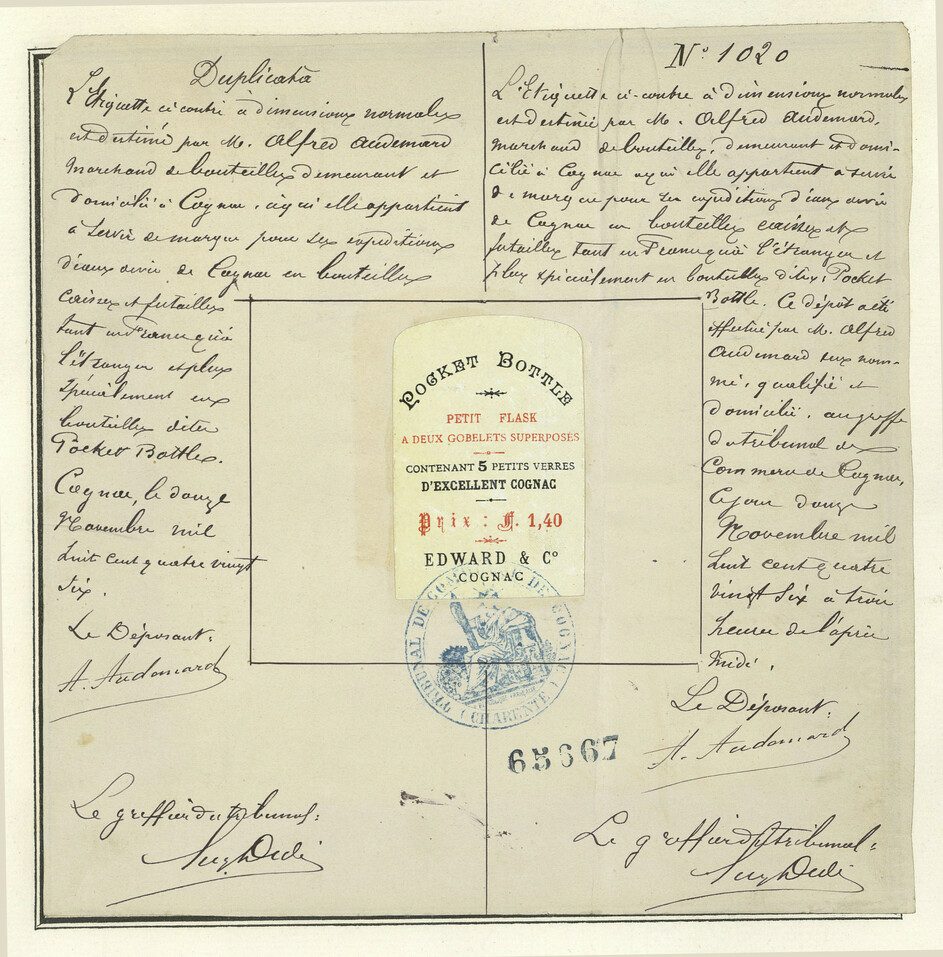 Duplicata
L'Etiquette ci contre à dimensions normales
est destinée par M. Alfred Audemard
Marchand de bouteilles demeurant et
domicilié à Cognac, à qui elle appartient
à servir de marque pour ses expéditions
d'eaux de vie de Cognac en bouteilles
caisses et futailles
tant en France qu'à
l'étranger et plus
spécialement en
bouteilles dites
Pocket Bottles.
Cognac, le douze
Novembre mil
huit cent quatre vingt
six.
Le Déposant:
A. Audemard
Le greffier du tribunal:
N° 1020
L'Etiquette ci-contre à dimensions normales
est destinée par M. Alfred Audemard,
Marchand de bouteilles, demeurant et domi-
cilié à Cognac à qui elle appartient à servir
de marque pour ses expéditions d'eaux de vie
de Cognac en bouteilles caisses et
futailles tant en France qu'à l'étranger et
plus spécialement en bouteilles dites: Pocket
Bottle. Ce dépôt a été
effectué par M. Alfred
Audemard sus nom-
mé, qualifié et
domicilié, au greffe
du tribunal de
Commerce de Cognac,
ce jour douze
Novembre mil
huit cent quatre
vingt six à trois
heures de l'après
midi.
Le Déposant:
A. Audemard
Le greffier du tribunal:
POCKET BOTTLE
PETIT FLASK
A DEUX GOBELETS SUPERPOSÉS
CONTENANT 5 PETITS VERRES
D'EXCELLENT COGNAC
Prix: F. 1,40
EDWARD & Co
COGNAC
TRIBUNAL DE COMMERCE DE COGNAC
(CHARENTE)
65667